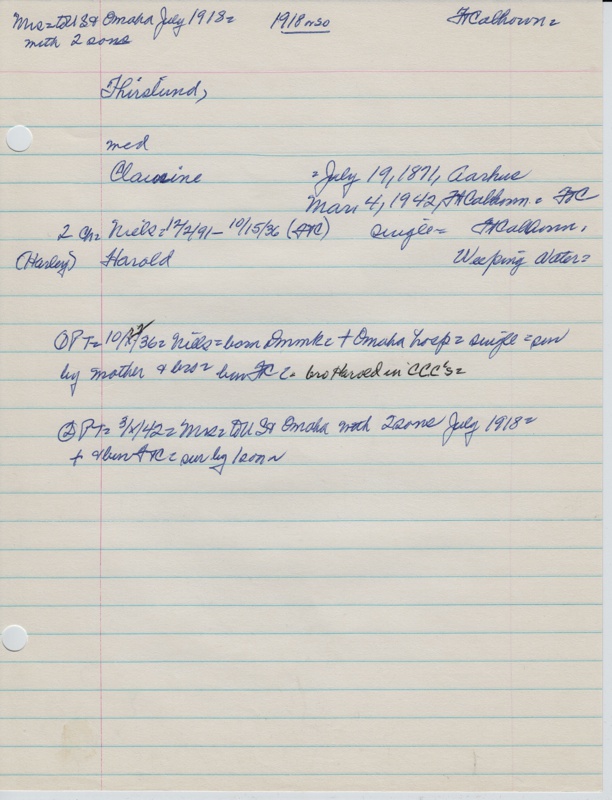 Mrs = to U S & Omaha July 1918 = 1918 Ft Calhoun =
with 2 sons
Thirslund,
med
Clausine = July 19, 1871, Aarhus
Mar. 4, 1942, Ft Calhoun = FtC
2 Ch = Niels = 12/2/91 - 10/15/36 (FtC) single = Ft Calhoun,
(Harley) Harold Weeping Water =
① PT = 10/22/36 = Niels = born Dnmk = + Omaha hosp = single = sur
by mother & bro = bur FtC = bro Harold in "CCC's =
② PT = 3/ /42 = Mrs = to U S & Omaha with 2 sons July 1918 =
+ & bur FtC = sur by 1 son ~